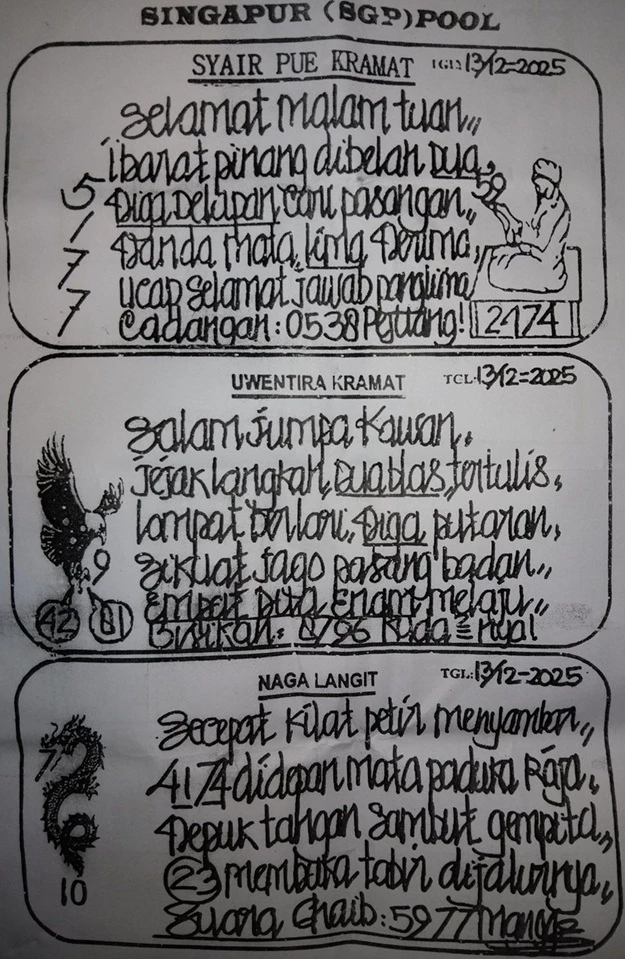 SINGAPUR (SGP) POOL
SYAIR PUE KRAMAT TGL: 13/12=2025
Selamat malam tuan,,
ibarat pinang dibelah Dua,
5 Diga, Delapan, Cari pasangan,, 59
1 Danda mata, lima Derima,
7 ucap selamat jawab panglima
7 Cadangan: 0538 2174
UWENTIRA KRAMAT TGL: 13/12=2025
Salam Jumpa Kawan,
Jejak langkah, Duablas, tertulis,
lompat berlari, Diga, putaran,
9 Sikuat Jago pasang badan,,
42 81 Empat Dua Enam melaju,,
Bisikan: 6796 Kuda = nya!
NAGA LANGIT TGL: 13/12-2025
Secepat Kilat petir menyambar,,
7 4174 didepan mata paduka Raja,
Depuk tangan Sambut gempita,,
10 23 membuka tabir dijalurnya,,
Suara Ghaib: 5977